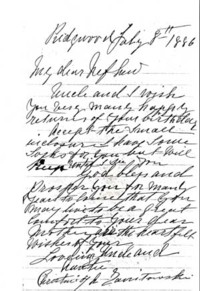 Ridgewood July 8th 1886
My dear Nephew
Uncle and I wish
you very many happy
returns of your birthday
accept the small
inclosure I have some
books for you but will
Keep until I see you
God bless and
Prosper you for many
years to come that you
may live to be a great
Comfort to your dear
Mother are the heartfelt
wishes of your
Loving Uncle and
Auntie